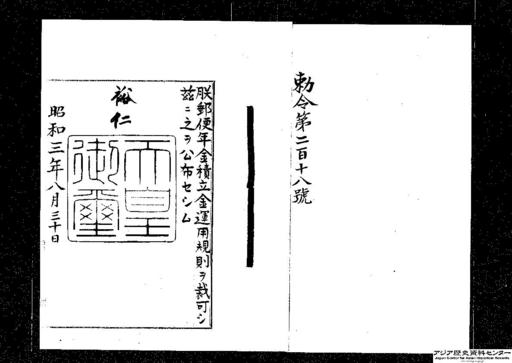 勅令第二百十八號
朕郵便年金積立金運用規則ヲ裁可シ
茲ニ之ヲ公布セシム
裕仁
天皇
御璽
昭和三年八月三十日
アジア歴史資料センター
Japan Center for Asian Historical Records